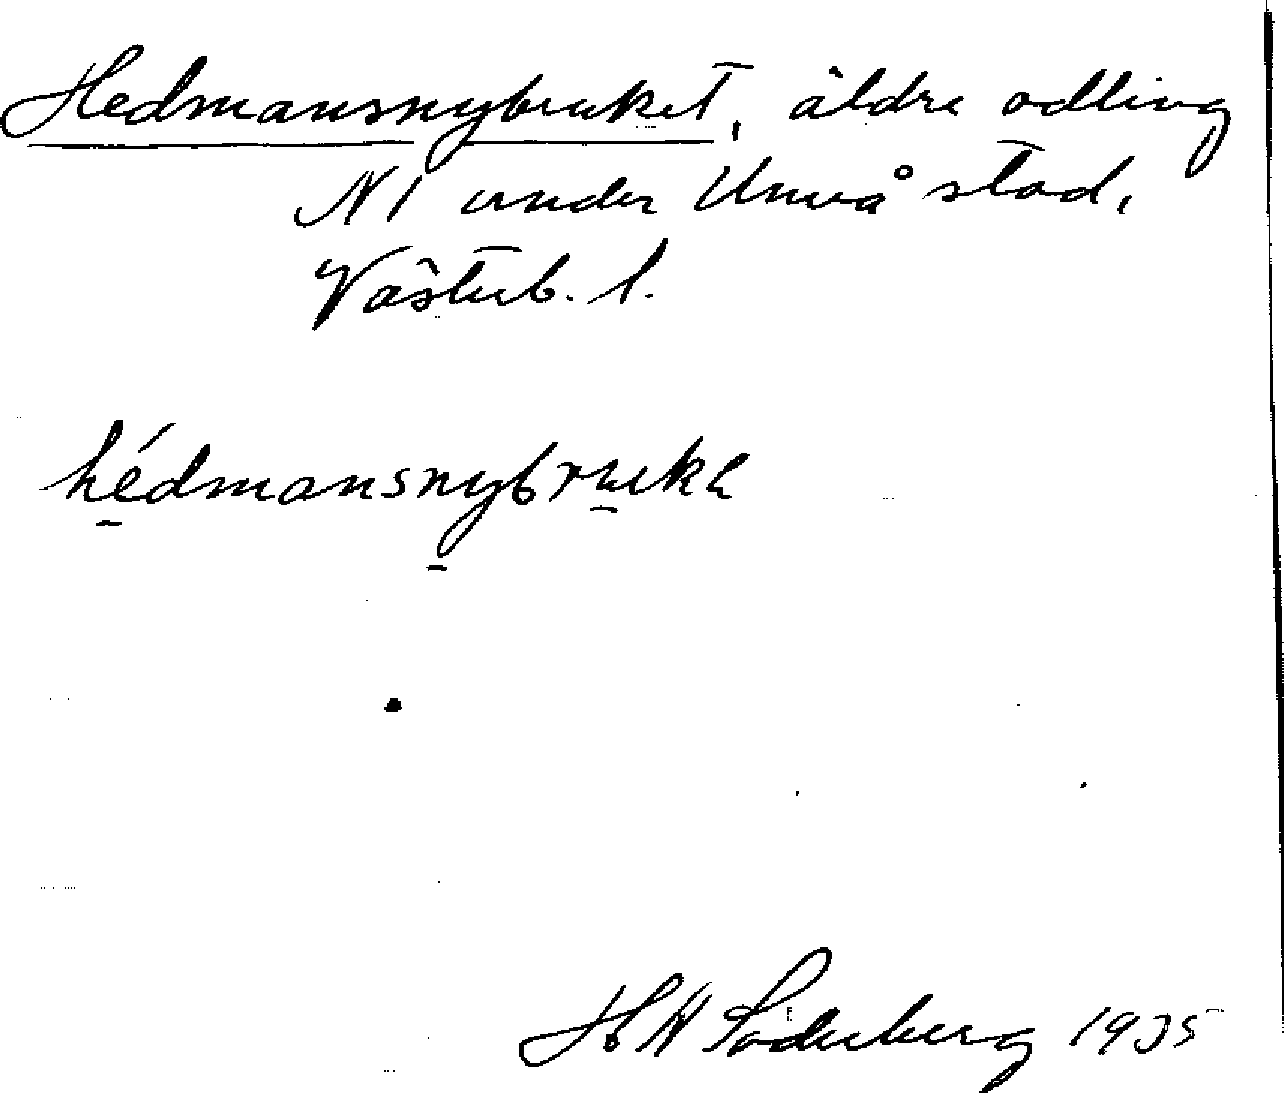 Hedmansnybruket, äldre odling
N 1 under Umeå stad,
Västerb. l.
hédmansnybruka
H W Söderberg 1935